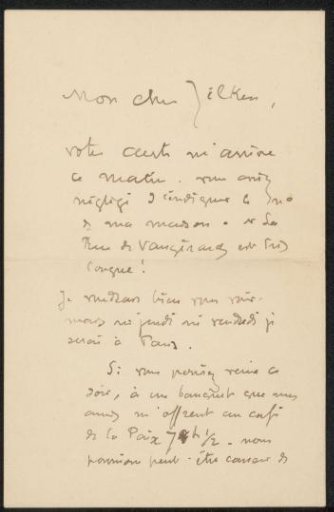 Mon cher Zilken,
votre carte m'arrive
ce matin. vous avez
négligé d'indiquer le no
de ma maison. et la
Rue de Vaugirard est très
longue!
Je voudrais bien vous voir.
mais ni jeudi ni vendredi je
serai à Paris.
Si vous pouviez venir ce
soir, à un banquet que mes
amis m'offrent au café
de la Paix 7h 1/2. nous
pourrions peut-être causer de